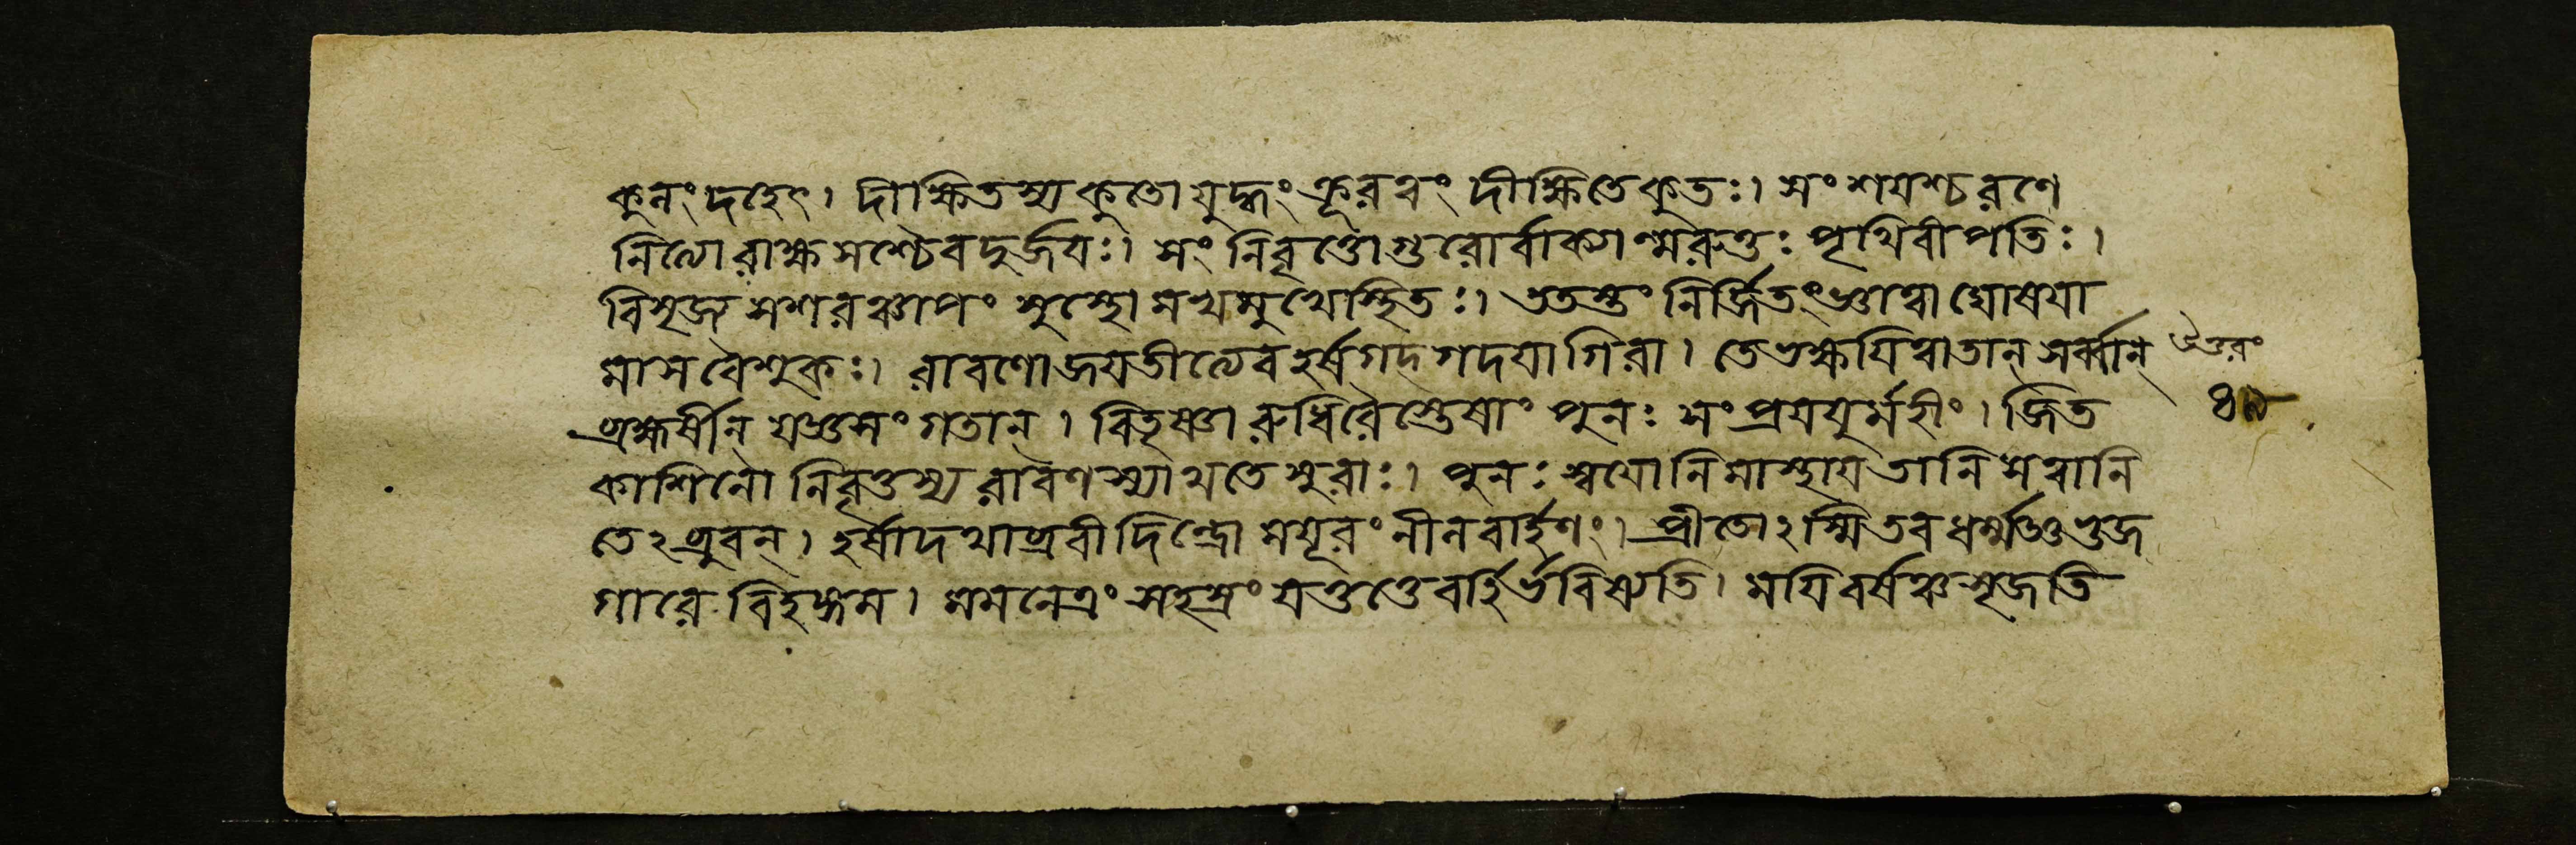 কুলং দহেৎ। দীক্ষিতস্য কুতো যুদ্ধং ক্রূরত্বং দীক্ষিতে কুতঃ। সংশযশ্চ রণে
নিত্যো রাক্ষসশ্চৈব দুর্জযঃ। সং নিবৃত্তো গুরোর্বাক্যাণ্মরুত্তঃ পৃথিবীপতিঃ।
বিসৃজ্য সশরঞ্চাপং সুস্থো মখমুখে স্থিতঃ। ততস্তং নির্জ্জিতং জ্ঞাত্বা ঘোষযা
মাস বৈ শুকঃ। রাবণো জযতীত্যেব হর্ষগদগদযা গিরা। তে ভক্ষযিত্বা তান্ সর্ব্বান্
ব্রহ্মর্ষীন্ যজ্ঞসংগতান্। বিতৃষ্ণো রুধিরৈস্তেষাং পুনঃ সংপ্রযযুর্মহীং। জিত
কাশিনো নিবৃত্তস্য রাবণস্যাথ তে সুরাঃ। পুনঃ স্বযোনিমাস্থায তানি সত্বানি
তেঽব্রুবন্। হর্ষাদথাব্রবীদিন্দ্রো মযূরং নীলবর্হিণং। প্রীতোঽস্মি তব ধর্ম্মজ্ঞ ভুজ
গারে বিহঙ্গম। মম নেত্রং সহস্রং যত্তত্তে বর্হির্ভবিষ্যতি। মযি বর্ষঞ্চ সৃজতি
উত্তরং
৪৯